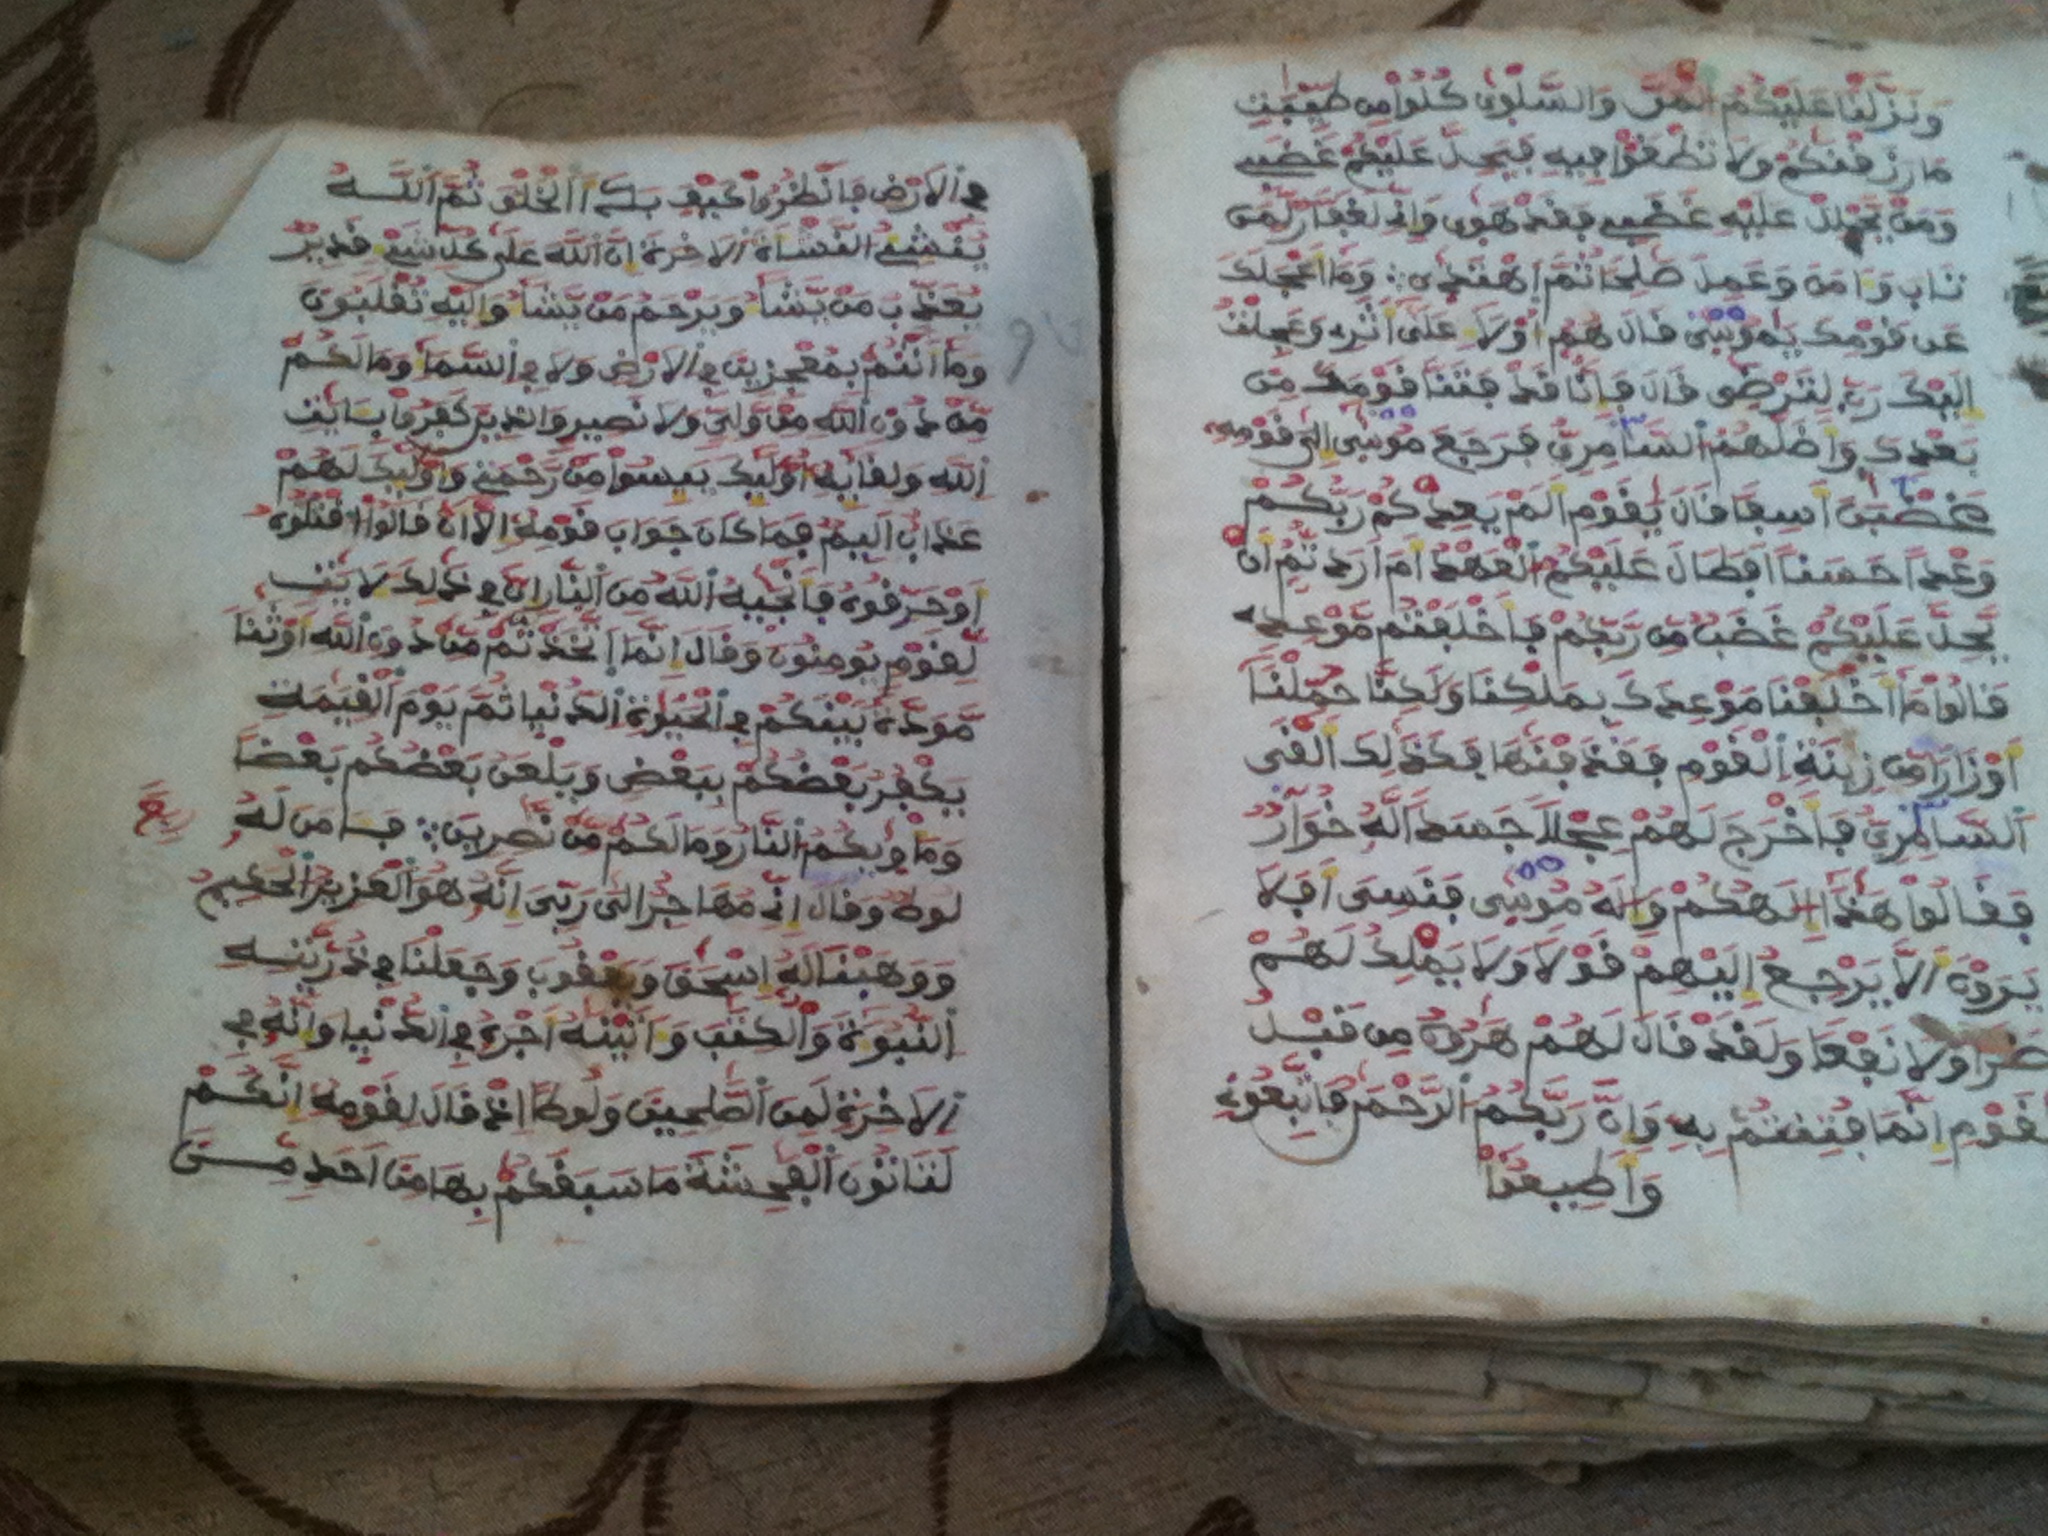 ونزلنا عليكم المن والسلوى كلوا من طيبت
ما رزقنكم ولا تطغوا فيه فيحل عليكم غضبي
ومن يحلل عليه غضبي فقد هوى وإني لغفار لمن
تاب وءامن وعمل صلحا ثم اهتدى وما أعجلك
عن قومك يموسى قال هم أولاء على أثري وعجلت
إليك رب لترضى قال فإنا قد فتنا قومك من
بعدك وأضلهم السامري فرجع موسى إلى قومه
غضبن أسفا قال يقوم ألم يعدكم ربكم
وعدا حسنا أفطال عليكم العهد أم أردتم أن
يحل عليكم غضب من ربكم فأخلفتم موعدي
قالوا ما أخلفنا موعدك بملكنا ولكنا حملنا
أوزارا من زينة القوم فقذفنها فكذلك ألقى
السامري فأخرج لهم عجلا جسدا له خوار
فقالوا هذا إلهكم وإله موسى فنسي أفلا
يرون ألا يرجع إليهم قولا ولا يملك لهم
ضرا ولا نفعا ولقد قال لهم هرون من قبل
يقوم إنما فتنتم به وإن ربكم الرحمن فاتبعوني
وأطيعوا
في الأرض فانظروا كيف بدأ الخلق ثم الله
ينشئ النشأة الأخرة إن الله على كل شيء قدير
يعذب من يشاء ويرحم من يشاء وإليه تقلبون
وما أنتم بمعجزين في الأرض ولا في السماء وما لكم
من دون الله من ولي ولا نصير والذين كفروا بـايت
الله ولقائه أولئك يئسوا من رحمتي وأولئك لهم
عذاب أليم فما كان جواب قومه إلا أن قالوا اقتلوه
أو حرقوه فأنجيه الله من النار إن في ذلك لأيت
لقوم يومنون وقال إنما اتخذتم من دون الله أوثنا
مودة بينكم في الحيوة الدنيا ثم يوم القيمة
يكفر بعضكم ببعض ويلعن بعضكم بعضا
ومأويكم النار وما لكم من نصرين فـامن له
ربع
لوط وقال إني مهاجر إلى ربي إنه هو العزيز الحكيم
ووهبنا له إسحق ويعقوب وجعلنا في ذريته
النبوة والكتب وءاتينه أجره في الدنيا وإنه في
الأخرة لمن الصلحين ولوطا إذ قال لقومه إنكم
لتاتون الفحشة ما سبقكم بها من أحد من